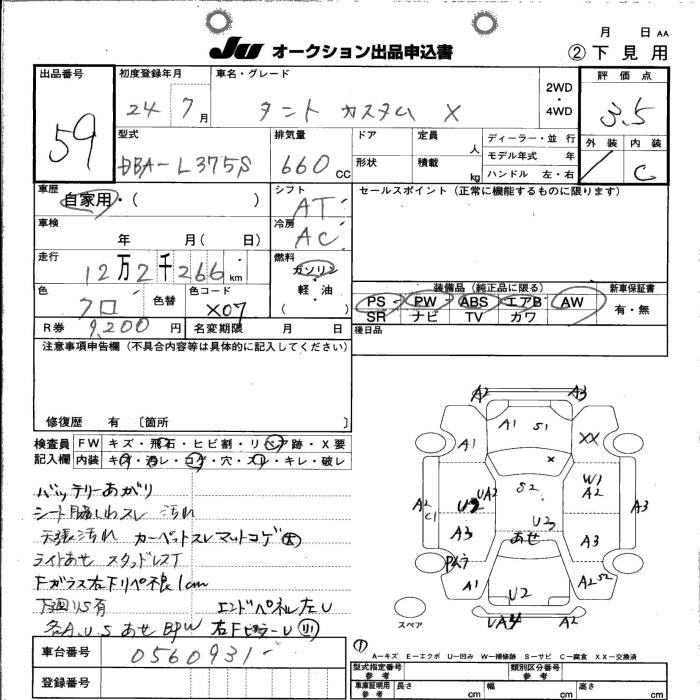 月 日 AA
JU オークション出品申込書 ②下見用
出品番号 59
初度登録年月 24 7月
車名・グレード タント カスタム X
2WD・4WD
評価点 3.5
外装 内装 C
型式 DBA-L375S
排気量 660 CC
ドア 形状
定員 人
積載 kg
ディーラー・並行
モデル年式 年
ハンドル 左・右
車歴 自家用・( )
シフト AT
セールスポイント（正常に機能するものに限ります）
車検 年 月( 日)
冷房 AC
走行 12万2千266km
燃料 ガソリン 軽・油 ( )
色 クロ 色替 色コード X07
装備品（純正品に限る） 新車保証書
PS PW ABS エアB AW 有・無
SR ナビ TV カワ
R券 9,200円 名変期限 月 日
後日品
注意事項申告欄（不具合内容等は具体的に記入してください）
修復歴 有 〔箇所 〕
検査員 FW キズ・飛石・ヒビ割・リペア跡・X要
記入欄 内装 キズ・汚レ・コゲ・穴・スレ・キレ・破レ
バッテリーあがり
シート脇しわスレ 汚れ
天張汚れ カーペットスレマットコゲ大
ライトあせ スタッドレスT
Fガラス右下リペ不良1cm
下回りS有 エンドパネル左U
各A.U.S あせ BPW 右FピラーU
A2 A3
A1 A1 S1 XX
X
A2 C1 U2 UA2 S2 W1 A2 A3
A3 U3 あせ A3
A1 U2 A2 S2
A2
スペア
A－キズ E－エクボ U－凹み W－補修跡 S－サビ C－腐食 XX－交換済
車台番号 0560931
登録番号
型式指定番号 参考 類別区分番号 参考
車庫証明用 参考 長さ cm 幅 cm 高さ cm